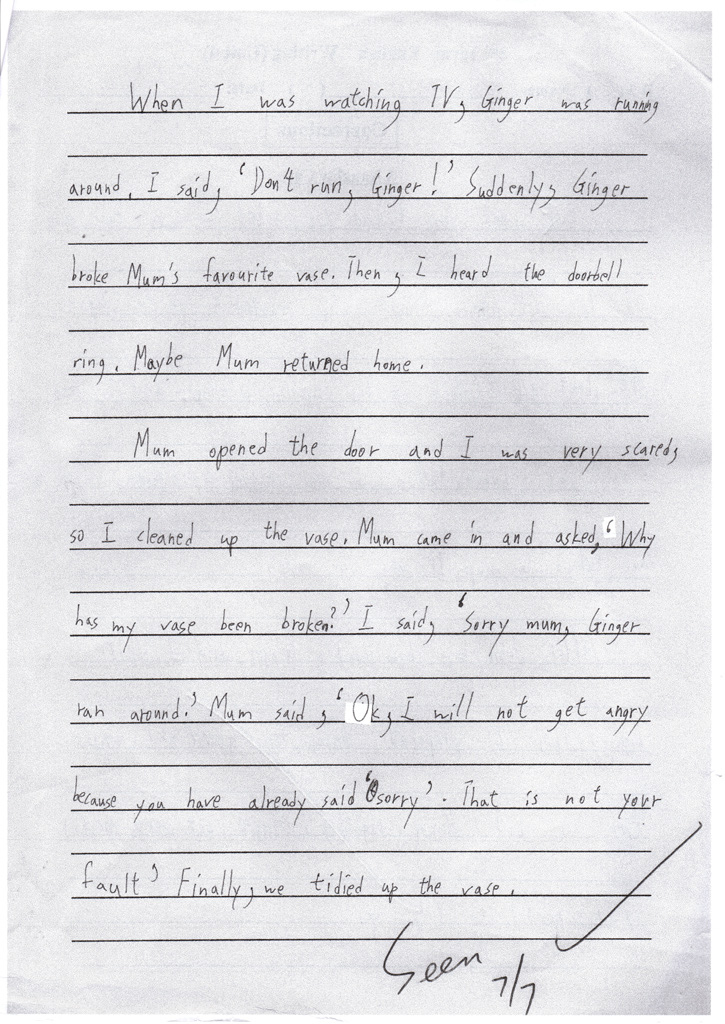 When I was watching TV, Ginger was running
around. I said, 'Don't run, Ginger!' Suddenly, Ginger
broke Mum's favourite vase. Then, I heard the doorbell
ring. Maybe Mum returned home.
Mum opened the door and I was very scared,
so I cleaned up the vase. Mum came in and asked, 'Why
has my vase been broken?' I said, 'Sorry mum, Ginger
ran around.' Mum said, 'Ok, I will not get angry
because you have already said 'sorry'. That is not your
fault' Finally, we tidied up the vase.
Seen
7/7